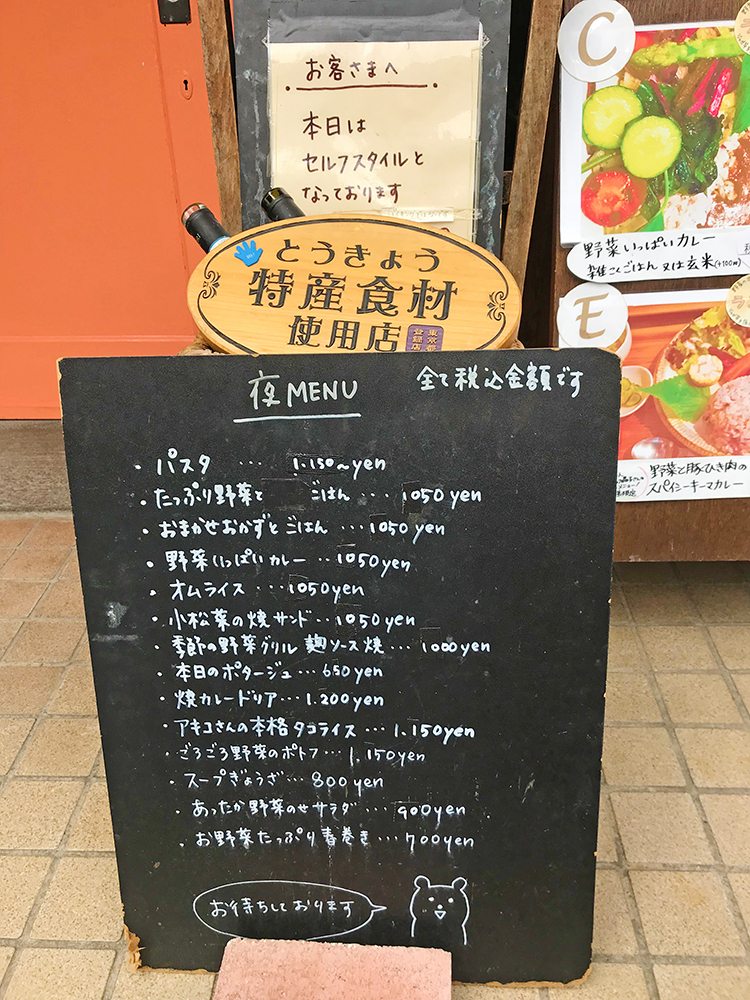 お客さまへ
本日は
セルフスタイルと
なっております
とうきょう
特産食材
使用店
東京都
登録店
C
野菜いっぱいカレー
雑こくごはん 又は玄米(+100円)
E
野菜と豚ひき肉の
スパイシーキーマカレー
夜MENU
全て税込金額です
・パスタ ・・・ 1.150~yen
・たっぷり野菜と ごはん ・・・ 1050yen
・おまかせおかずとごはん ・・・ 1050yen
・野菜いっぱいカレー ・・・ 1050yen
・オムライス ・・・ 1050yen
・小松菜の焼サンド ・・・ 1050yen
・季節の野菜グリル 麹ソース焼 ・・・ 1000yen
・本日のポタージュ ・・・ 650yen
・焼カレードリア ・・・ 1.200yen
・アキコさんの本格タコライス ・・・ 1.150yen
・ごろごろ野菜のポトフ ・・・ 1.150yen
・スープぎょうざ ・・・ 800yen
・あったか野菜のせサラダ ・・・ 900yen
・お野菜たっぷり春巻き ・・・ 700yen
お待ちしております